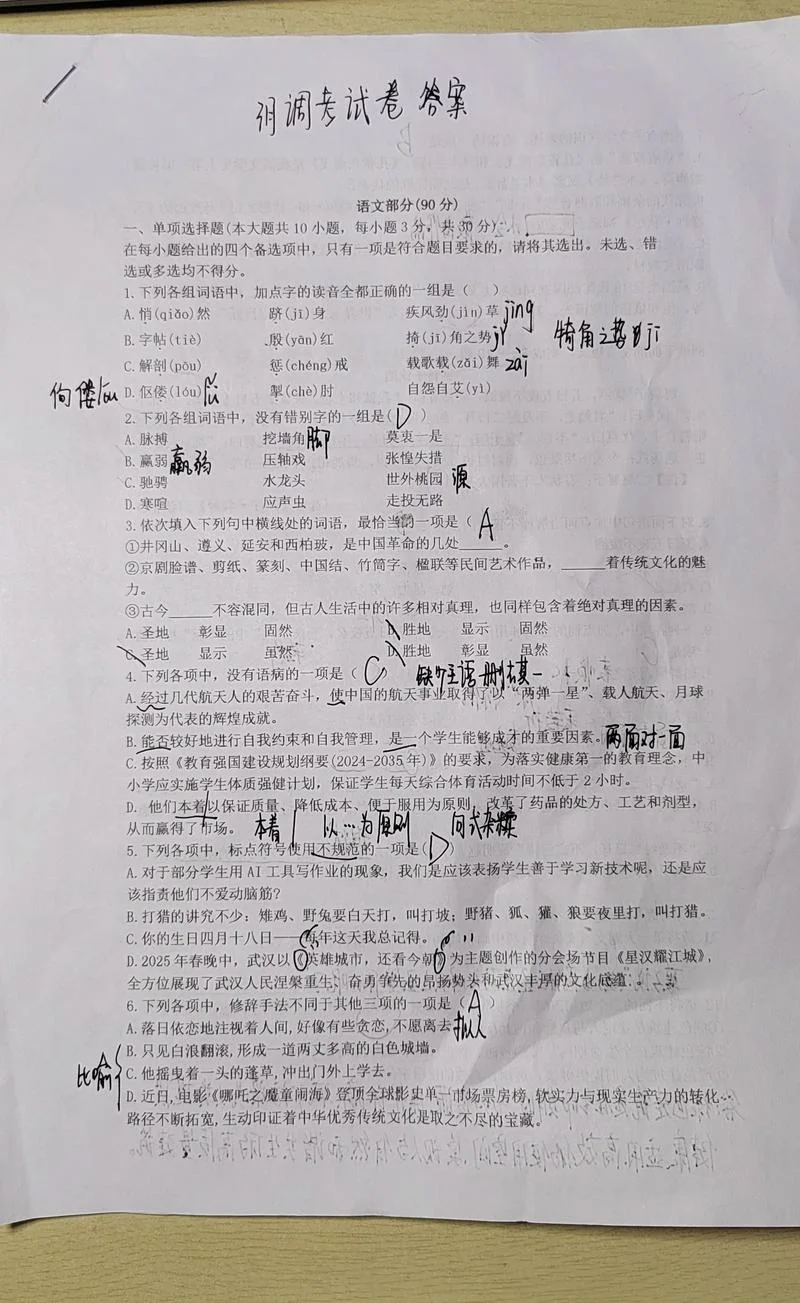 3月调考试卷 答案
语文部分(90分)
一、单项选择题(本大题共10小题，每小题3分，共30分)
在每小题给出的四个备选项中，只有一项是符合题目要求的，请将其选出。未选、错
选或多选均不得分。
1.下列各组词语中，加点字的读音全都正确的一组是( )
A.悄(qiǎo)然 跻(jī)身 疾风劲(jìn)草 jìng
B.字帖(tiè) 殷(yān)红 掎(jī)角之势 jǐ 犄角之势的jī
C.解剖(pōu) 惩(chéng)戒 载歌载(zǎi)舞 zài
佝偻lóu D.伛偻(lóu) lǚ 掣(chè)肘 自怨自艾(yì)
2.下列各组词语中，没有错别字的一组是(D)
A.脉搏 挖墙角 脚 莫衷一是
B.赢弱 羸弱 压轴戏 张惶失措
C.驰骋 水龙头 世外桃园 源
D.寒暄 应声虫 走投无路
3.依次填入下列句中横线处的词语，最恰当的一项是( A
①井冈山、遵义、延安和西柏坡，是中国革命的几处______。
②京剧脸谱、剪纸、篆刻、中国结、竹筒字、楹联等民间艺术作品，______着传统文化的魅
力。
③古今______不容混同，但古人生活中的许多相对真理，也同样包含着绝对真理的因素。
A.圣地 彰显 固然 B.胜地 显示 固然
C.圣地 显示 虽然 D.胜地 彰显 虽然
4.下列各项中，没有语病的一项是( C ) 缺少主语 删去其一
A.经过几代航天人的艰苦奋斗，使中国的航天事业取得了以“两弹一星”、载人航天、月球
探测为代表的辉煌成就。
B.能否较好地进行自我约束和自我管理，是一个学生能够成才的重要因素。两面对一面
C.按照《教育强国建设规划纲要(2024-2035年)》的要求，为落实健康第一的教育理念，中
小学应实施学生体质强健计划，保证学生每天综合体育活动时间不低于2小时。
D. 他们本着以保证质量、降低成本、便于服用为原则，改革了药品的处方、工艺和剂型，
从而赢得了市场。 本着 以…为原则 句式杂糅
5.下列各项中，标点符号使用不规范的一项是( D )
A.对于部分学生用AI工具写作业的现象，我们是应该表扬学生善于学习新技术呢，还是应
该指责他们不爱动脑筋?
B.打猎的讲究不少：雉鸡、野兔要白天打，叫打坡；野猪、狐、獾、狼要夜里打，叫打猎。
C.你的生日四月十八日——每年这天我总记得。 “ ”
D.2025年春晚中，武汉以《英雄城市，还看今朝》为主题创作的分会场节目《星汉耀江城》，
全方位展现了武汉人民涅槃重生、奋勇争先的昂扬势头和武汉丰厚的文化底蕴。
6.下列各项中，修辞手法不同于其他三项的一项是( A )
A.落日依恋地注视着人间,好像有些贪恋,不愿离去 拟人
B.只见白浪翻滚,形成一道两丈多高的白色城墙。
比喻 C.他摇曳着一头的蓬草,冲出门外上学去。
D.近日,电影《哪吒之魔童闹海》登顶全球影史单一市场票房榜,软实力与现实生产力的转化
路径不断拓宽,生动印证着中华优秀传统文化是取之不尽的宝藏。